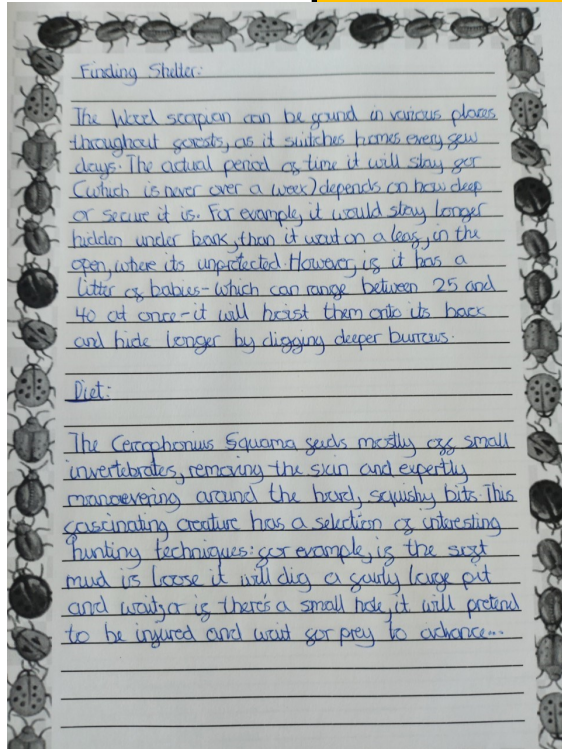 Finding Shelter:
The Wood scorpian can be found in various places
throughout forests, as it switches homes every few
days. The actual period of time it will stay for
(which is never over a week) depends on how deep
or secure it is. For example, it would stay longer
hidden under bark, than it would on a leaf, in the
open, where its unprotected. However, if it has a
litter of babies - which can range between 25 and
40 at once - it will hoist them onto its back
and hide longer by digging deeper burrows.
Diet:
The Squama feeds mostly off small
invertebrates, removing the skin and expertly
manoevering around the hard, squishy bits. This
fascinating creature has a selection of interesting
hunting techniques: for example, if the soft
mud is loose it will dig a fairly large pit
and wait, or if there's a small hole, it will pretend
to be injured and wait for prey to advance...